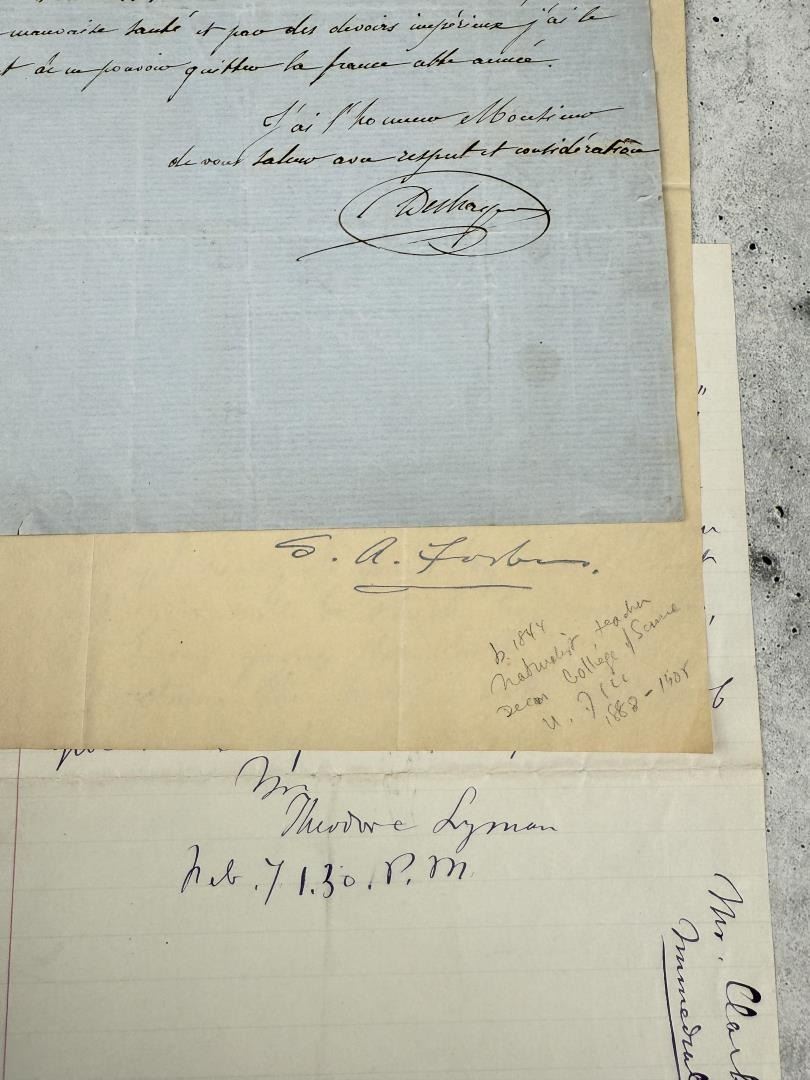 mauvaise santé et par des devoirs impérieux j'ai le
de ne pouvoir quitter la france cette année.
J'ai l'honneur Monsieur
de vous saluer avec respect et considération
Deshayes
S. A. Forbes.
b. 1844
naturalist teacher
Dean College of Science
U. of Ill
1888 - 1905
Mr.
Theodore Lyman
Feb. 7 1.30. P. M.
Mr. Clark